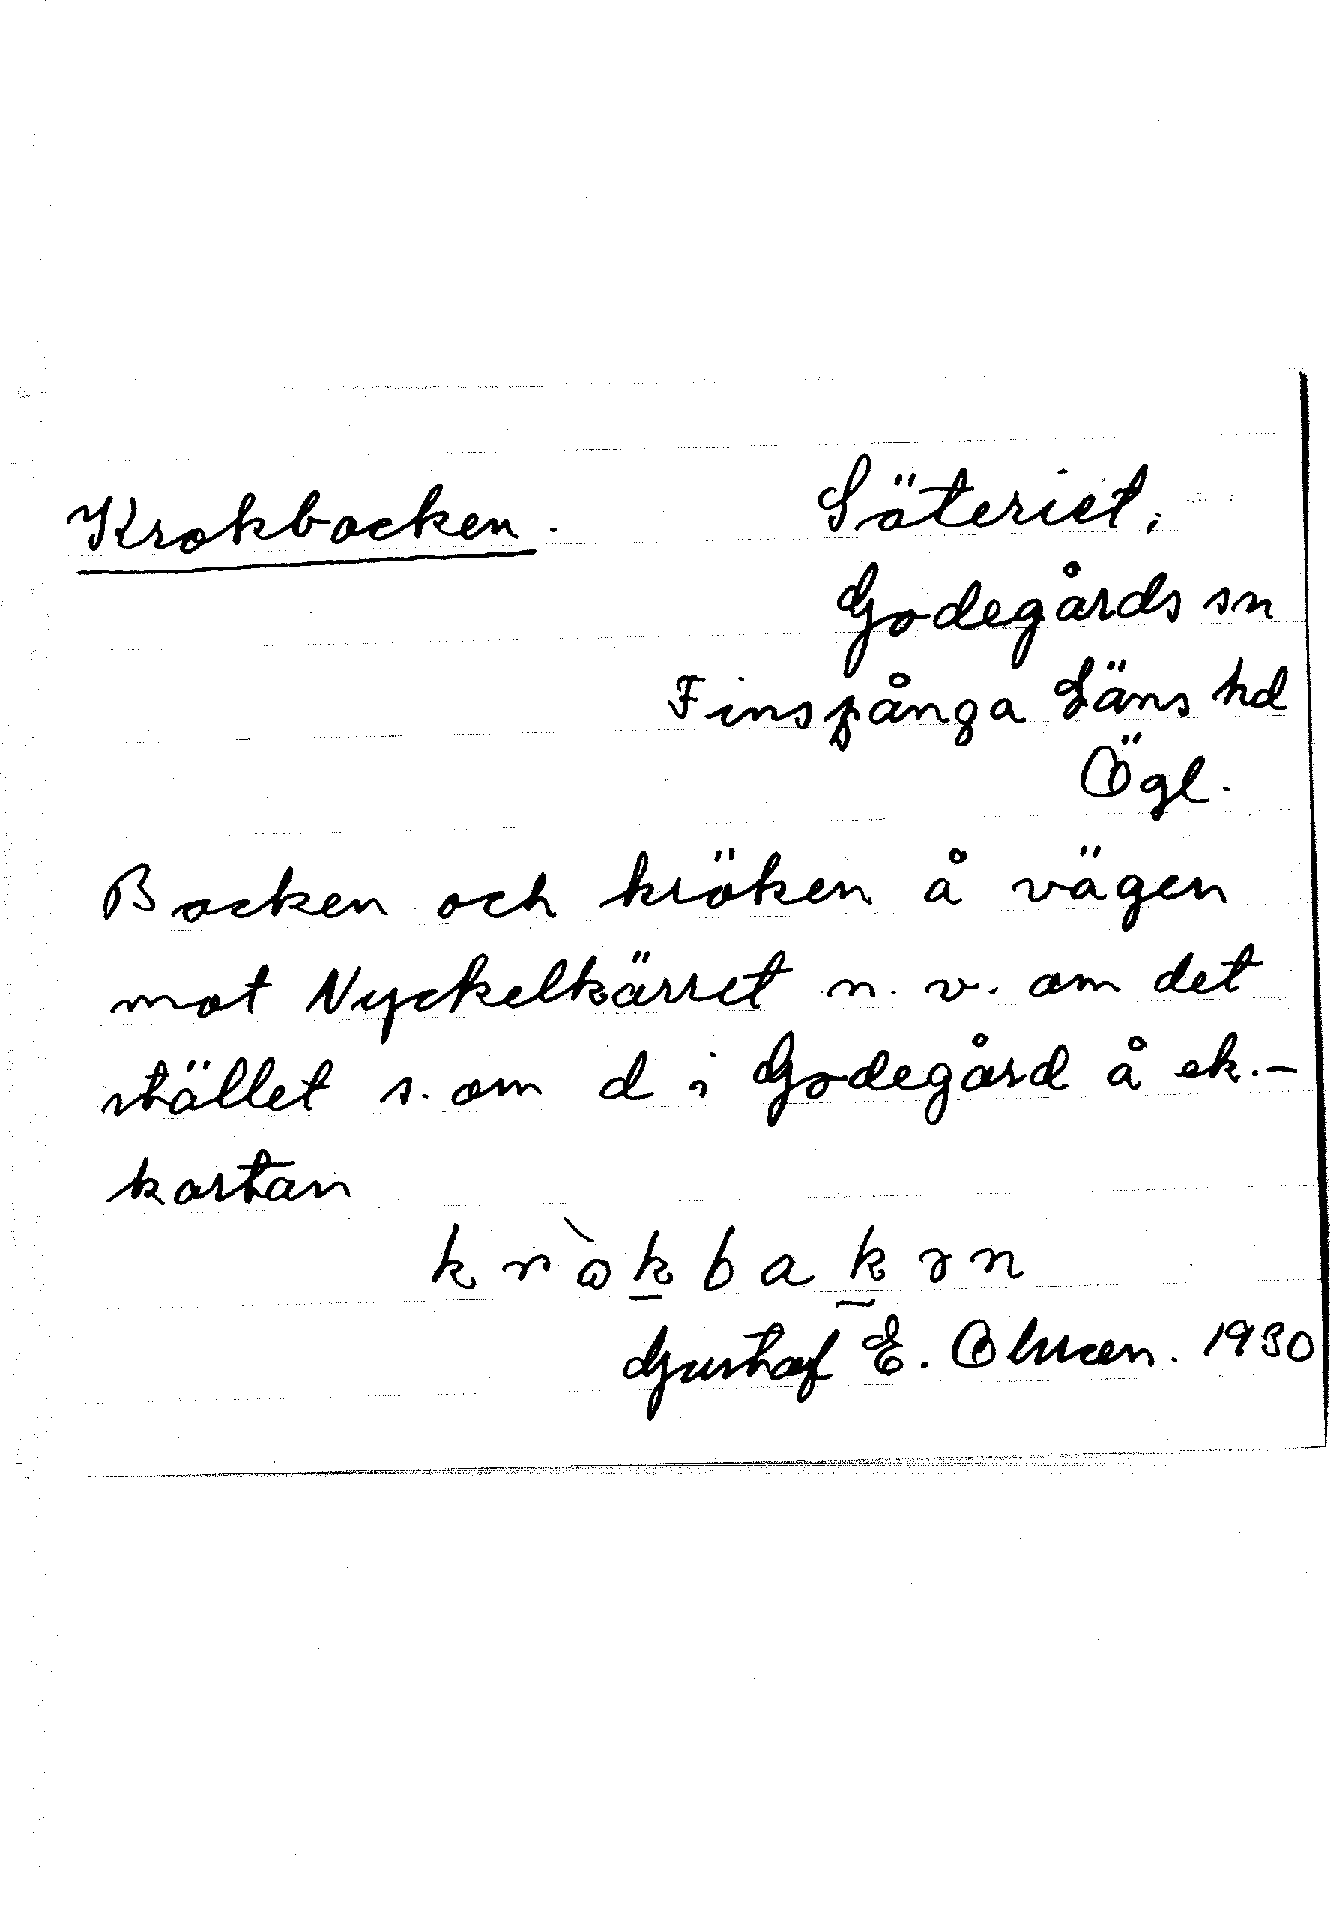 Krokbacken.
Säteriet,
Godegårds sn
Finspånga Läns hd
Ögl.
Backen och kröken å vägen
mot Nyckelkärret n. v. om det
stället s. om d i Godegård å ek.-
kartan
kròkbakən
Gustaf E. Olsson. 1930